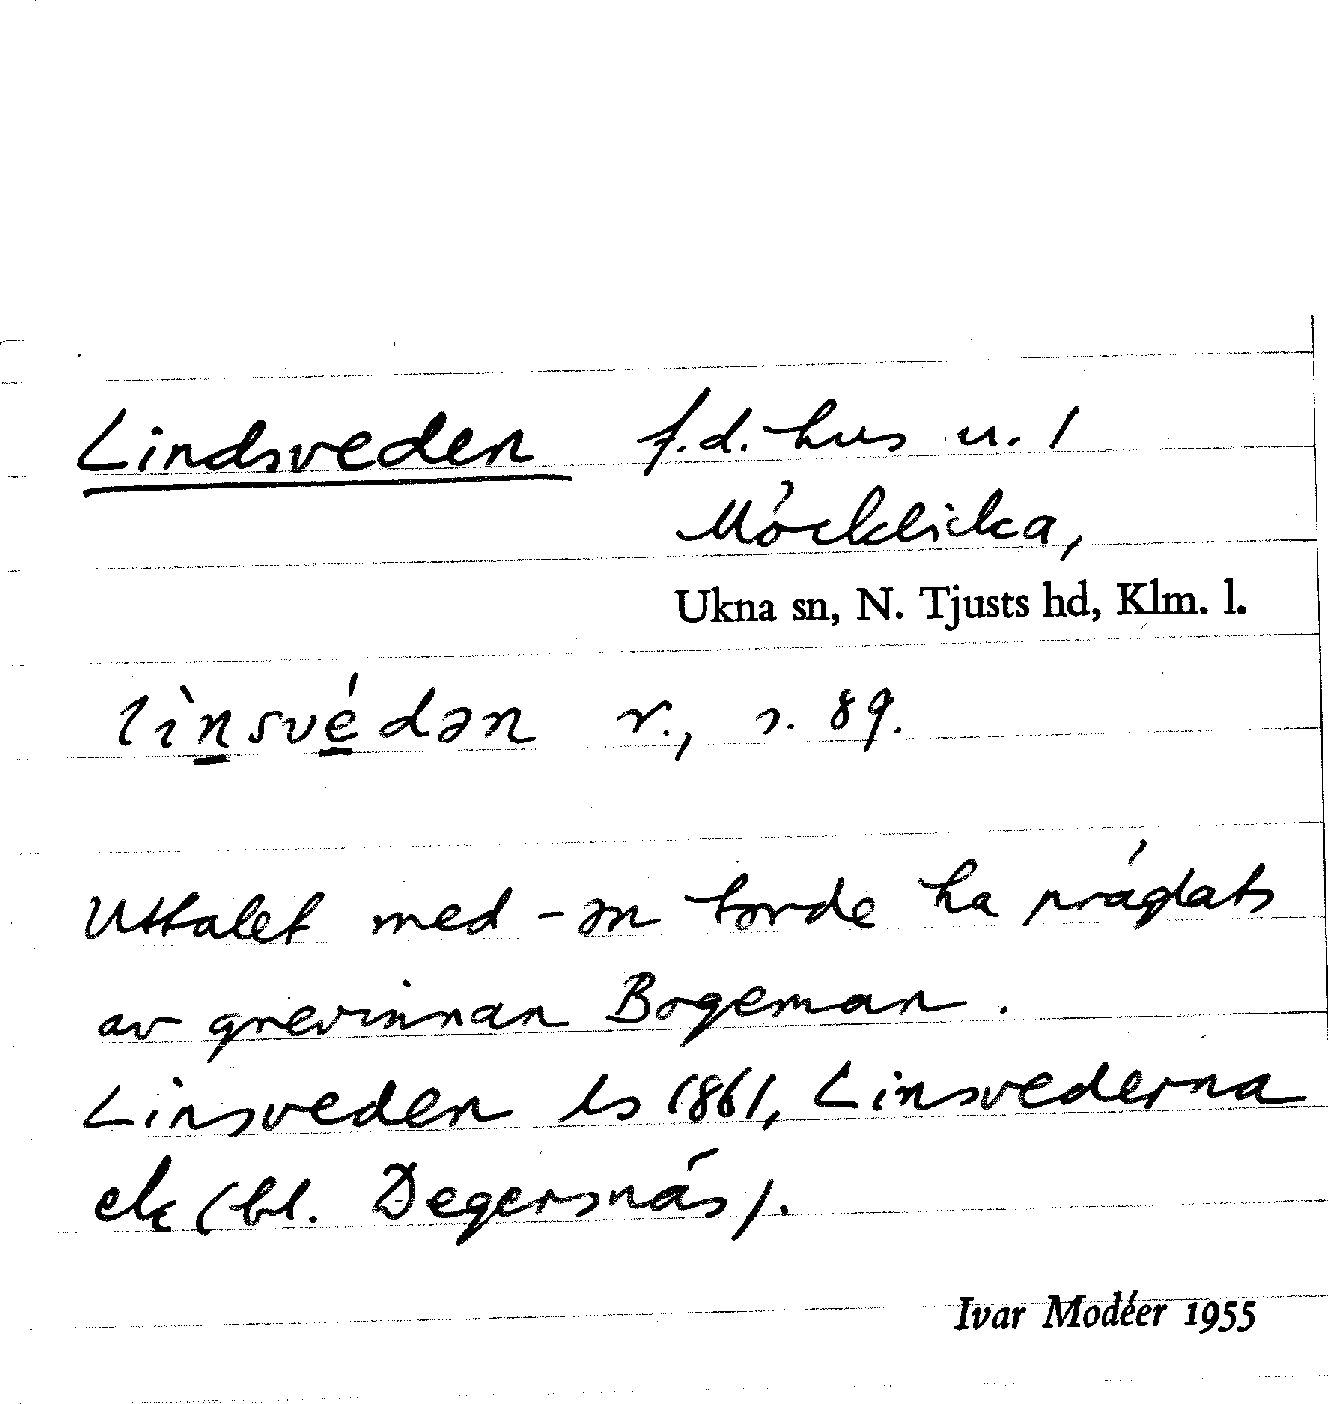 Lindsveden f.d. hus u. 1
Möcklicka,
Ukna sn, N. Tjusts hd, Klm. l.
lìnsvédən r., s. 89.
Uttalet med -ən torde ha präglats
av grevinnan Bogeman.
Linsveden ls 1861, Linsvederna
ek (bl. Degersnäs).
Ivar Modéer 1955